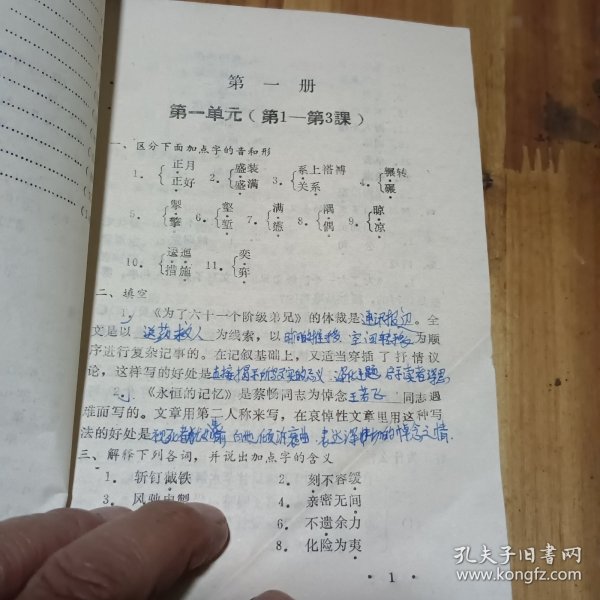 第一册
第一单元（第1—第3課）
一、区分下面加点字的音和形
1. {正月 正好 2. {盛装 盛满 3. {系上搭膊 关系 4. {辗转 碾
5. 6. {壑 堑 7. {满 8. {隅 偶 9. {晾 凉
10. {逶迤 措施 11. {奕 弈
二、填空
1. 《为了六十一个阶级弟兄》的体裁是通讯报边。全
文是以送药救人为线索，以时间推移 空间转移为顺
序进行复杂记事的。在记叙基础上，又适当穿插了抒情议
论，这样写的好处是直接揭示所叙事实的意义 深化主题 启示读者深思
2. 《永恒的记忆》是蔡畅同志为悼念王若飞同志遇
难而写的。文章用第二人称来写，在哀悼性文章里用这种写
法的好处是 向他倾诉衷曲，表达深切的悼念之情.
三、解释下列各词，并说出加点字的含义
1. 斩钉截铁 2. 刻不容缓
3. 风驰电掣 4. 亲密无间
6. 不遗余力
8. 化险为夷
• 1 •
孔夫子旧书网
www.kongfz.com